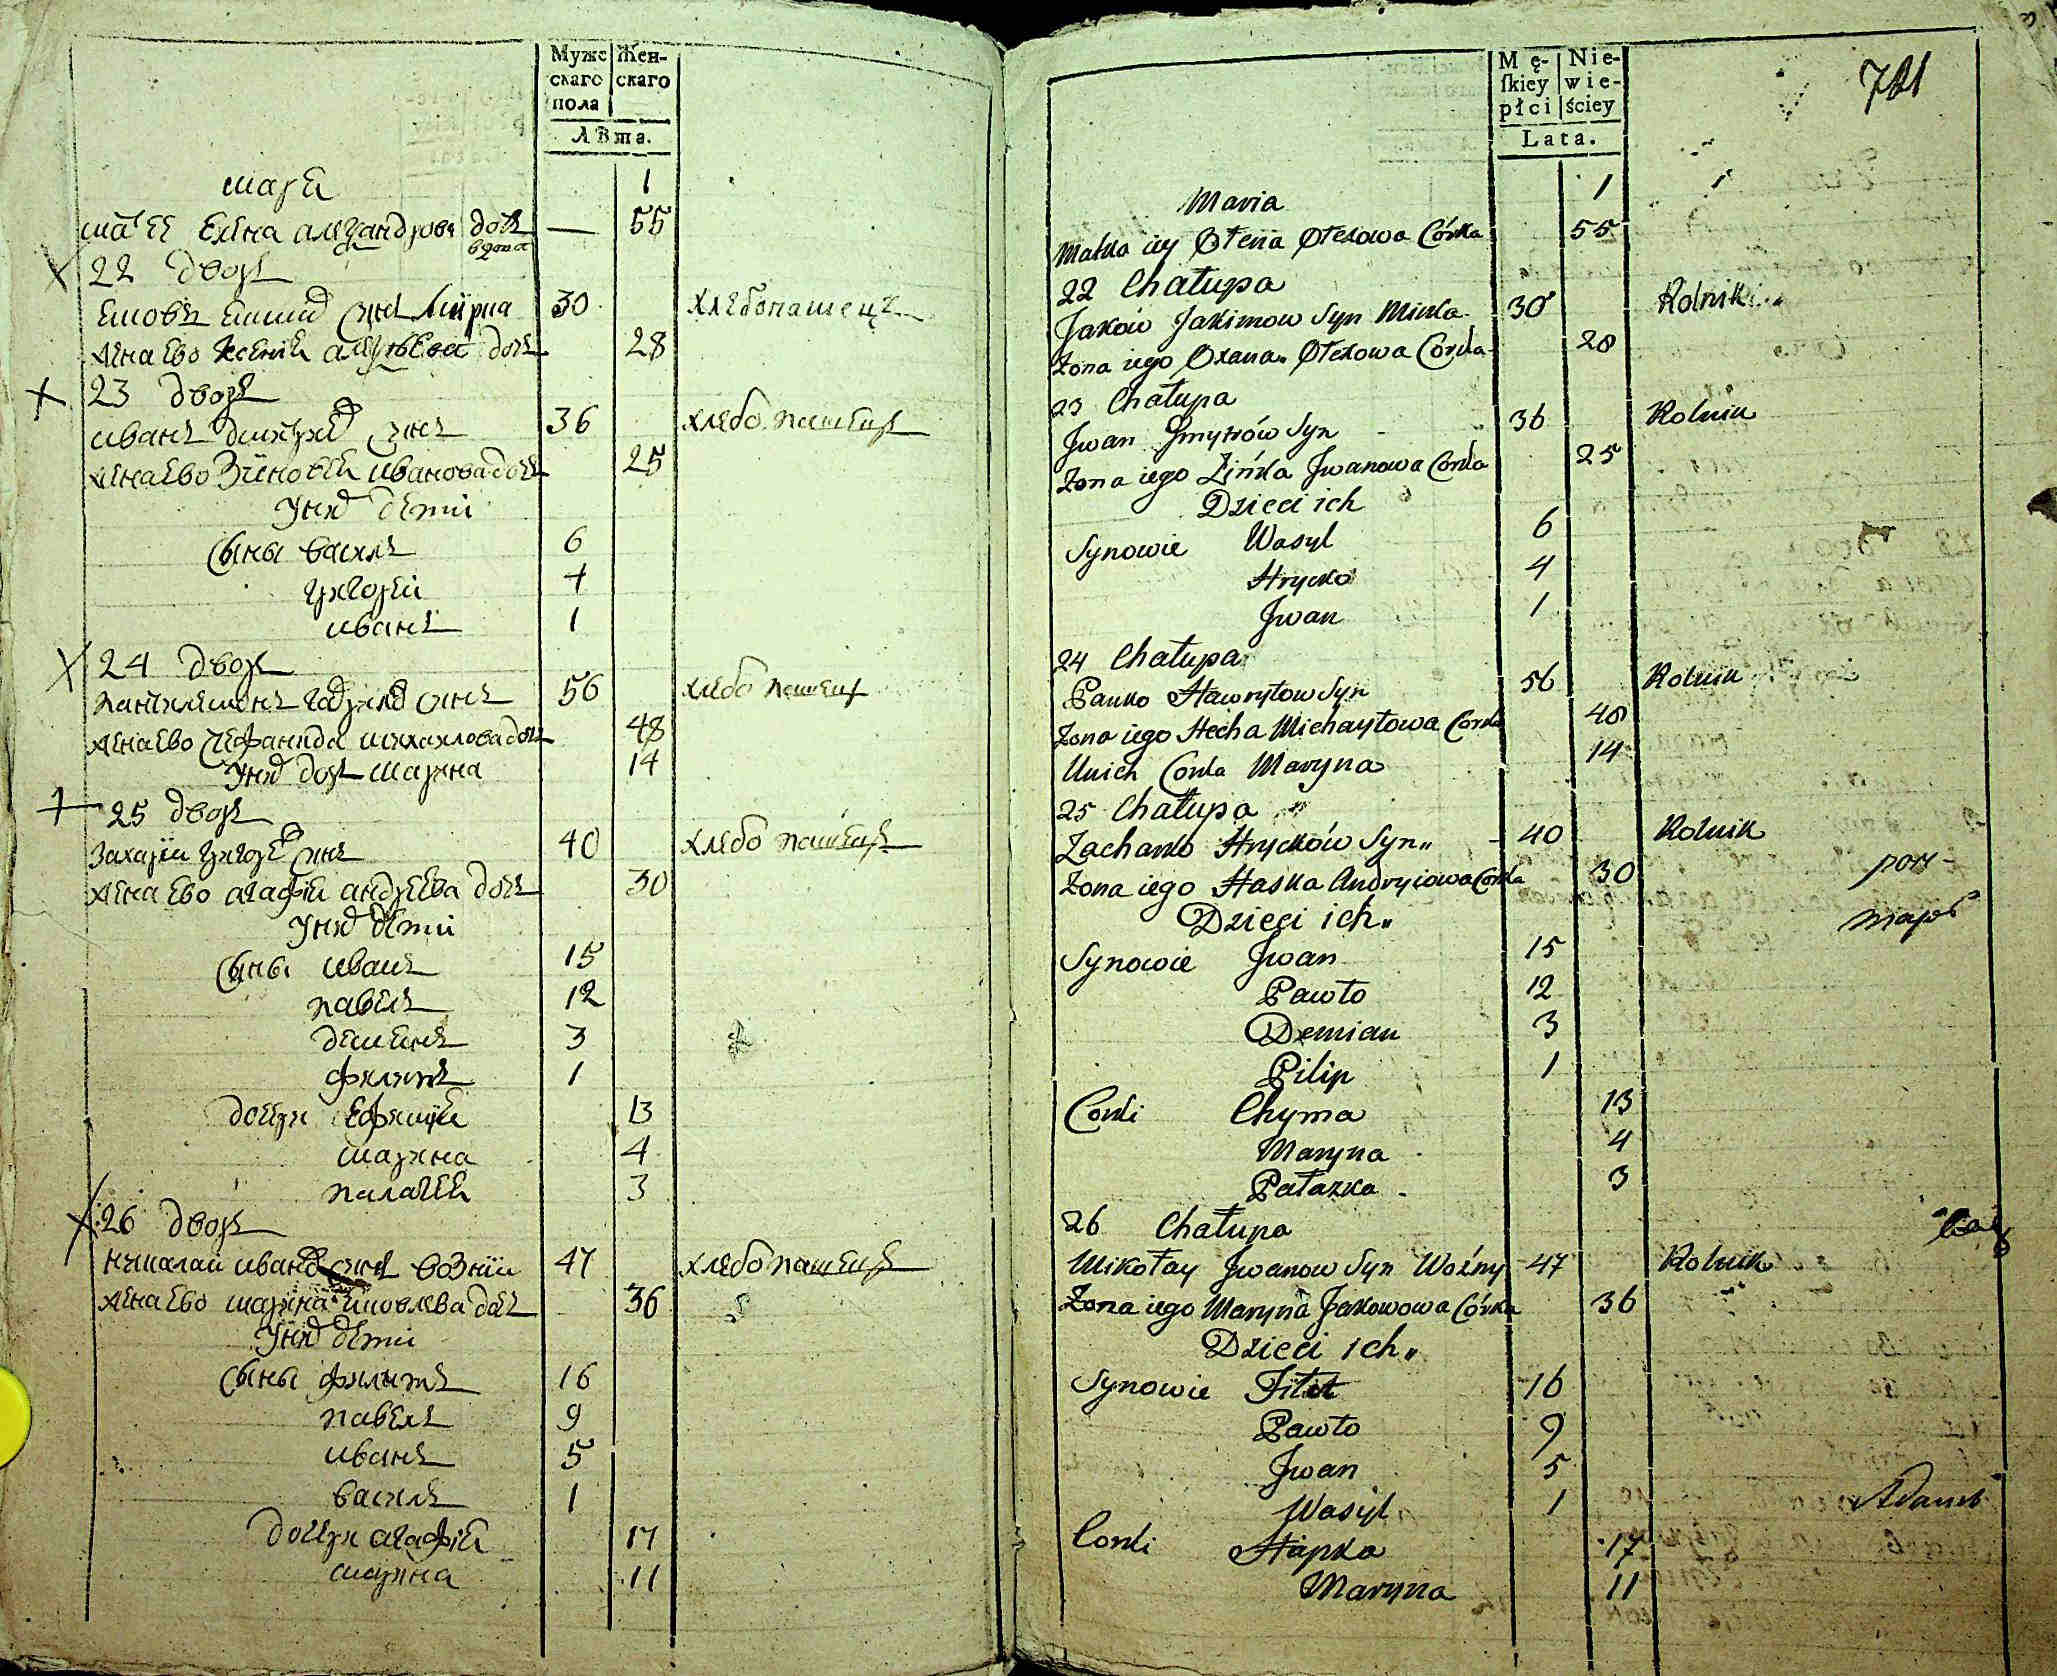 Муже
скаго
пола
Жен-
скаго
лѣта.
мария 1
мать ее елена алеѯандрова дочь — 55
вдова
22 дворъ
30 хлебопашецъ
жена ево ксения алеѯеева дочь 28
23 дворъ
иванъ дмитриевъ сынъ 36 хлебопашецъ
жена ево Зиновия иванова дочь 25
у них дети
сыны василъ 6
григорей 4
иванъ 1
24 дворъ
пантелемонъ гаврилов сынъ 56 хлебопашецъ
жена ево стефанида михаилова дочь 48
у них дочь марина 14
25 дворъ
Захарий григорев сынъ 40 хлебопашецъ
жена ево агафия андреева дочь 30
у них дети
сыны иванъ 15
павелъ 12
демянъ 3
филипъ 1
дочери ефимия 13
марина 4
палагея 3
26 дворъ
николай иванов сынъ возний 47 хлебопашецъ
жена ево марина яковлева дочь 36
у них дети
сыны филипъ 16
павелъ 9
иванъ 5
василъ 1
дочери агафия 17
марина 11
Mę-
skiey
płci
Nie-
wie-
ściey
Lata.
721
Maria 1
Matka iey Ołena Ołexowa Córka 55
22 Chałupa
Jakow Jakimow Syn Minka 30 Rolnik
Żona iego Oxana Ołexowa Corka 28
23 Chałupa
Jwan Dmytrów Syn 36 Rolnik
Żona iego Zińka Jwanowa Corka 25
Dzieci ich
Synowie Wasyl 6
Hrycko 4
Jwan 1
24 Chałupa
Panko Hawryłow Syn 56 Rolnik
Żona iego Stecha Michayłowa Corka 48
U nich Corka Maryna 14
25 Chałupa
Zacharko Hryckow Syn 40 Rolnik
Żona iego Haska Andryiowa Corka 30
Dzieci ich
Synowie Jwan 15
Pawło 12
Demian 3
Pilip 1
Corki Chyma 13
Maryna 4
Pałazka 3
26 Chałupa
Mikołay Jwanow Syn Woźny 47 Rolnik
Żona iego Maryna Jakowowa Córka 36
Dzieci ich
Synowie 16
Pawło 9
Jwan 5
Wasyl 1
Corki Hapka 17
Maryna 11